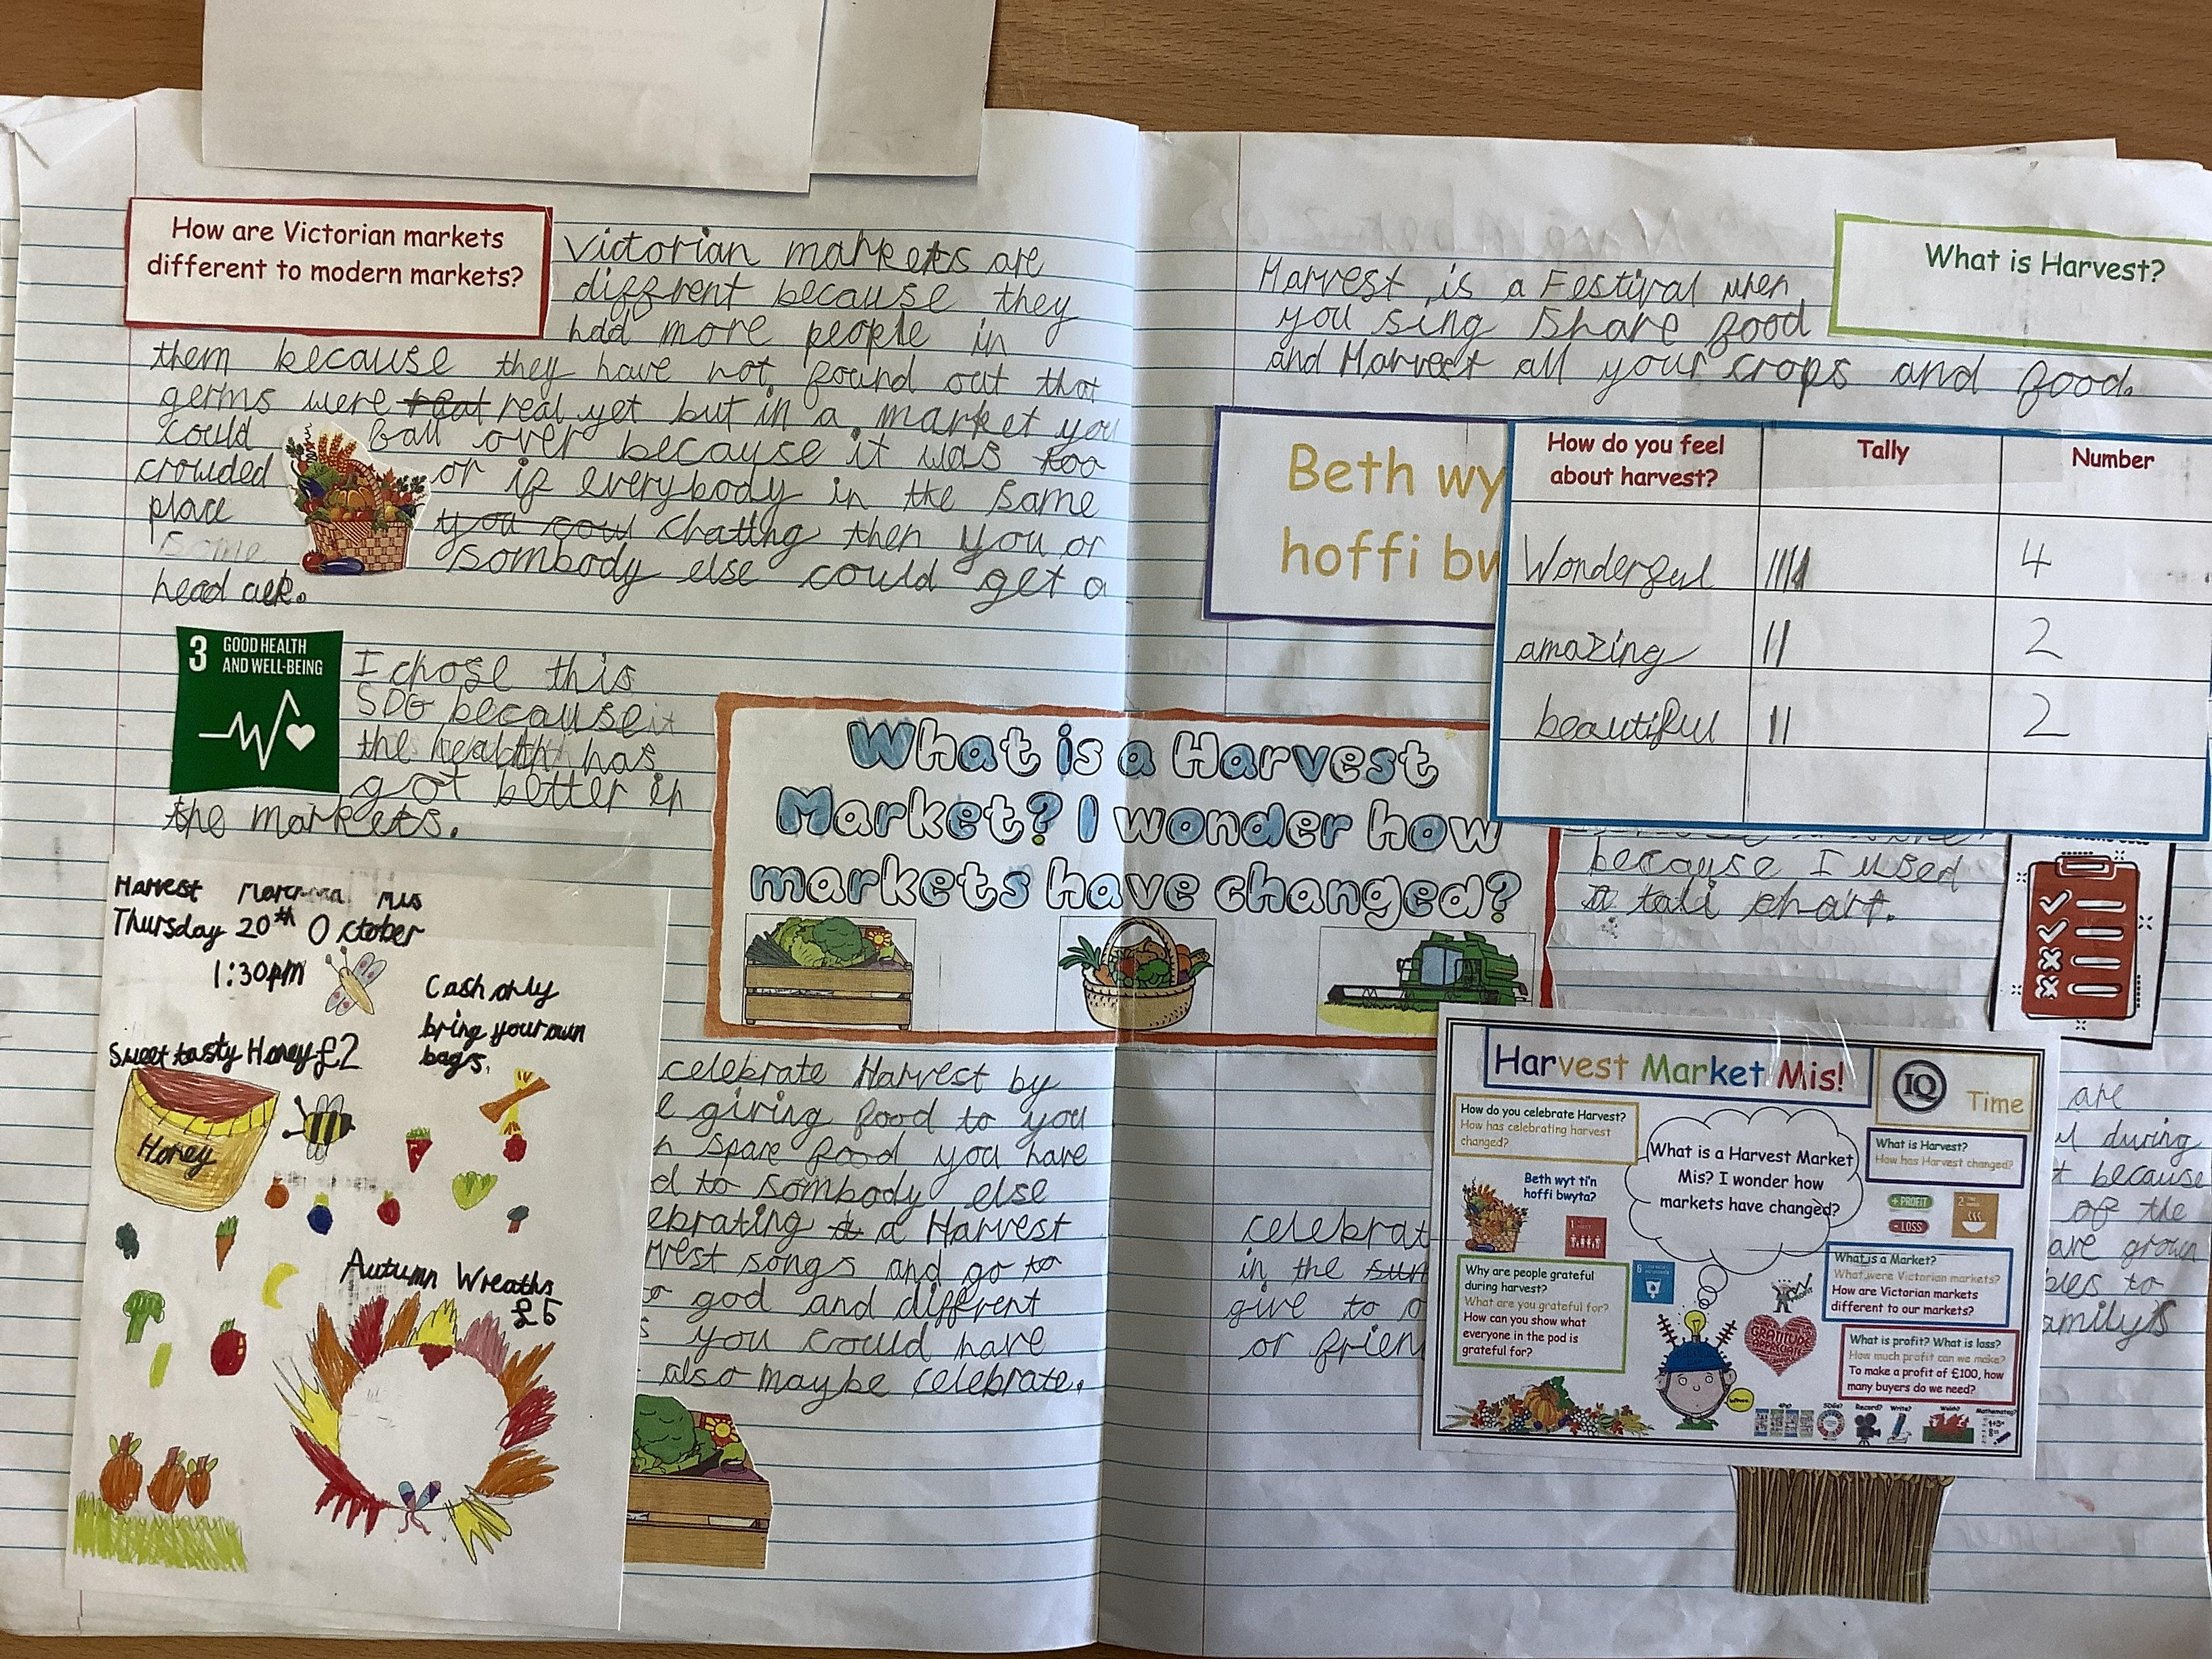 How are Victorian markets
different to modern markets?
Victorian markets are
diffrent because they
had more people in
them because they have not found out that
germs were real yet but in a market you
could fall over because it was too
crowded or if everybody in the same
place chatting then you or
Some sombody else could get a
head ack.
3 GOOD HEALTH
AND WELL-BEING
I chose this
SDG because it
the health has
got better in
the markets.
Harvest
Thursday 20th October
1:30pm
Cash only
bring your own
bags.
Sweet tasty Honey £2
Honey
Autumn Wreaths
£5
What is a Harvest
Market? I wonder how
markets have changed?
celebrate Harvest by
giving food to you
spare food you have
to sombody else
a Harvest
songs and go to
god and different
you could have
also maybe celebrate.
What is Harvest?
Harvest is a Festival when
you sing share food
and Harvest all your crops and food.
Beth wy
hoffi bw
How do you feel
about harvest?
Tally
Number
Wonderful 4
amazing 2
beautiful 2
because I used
a tali chart.
Harvest Market Mis!
IQ Time
How do you celebrate Harvest?
How has celebrating harvest
changed?
What is a Harvest Market
Mis? I wonder how
markets have changed?
What is Harvest?
How has Harvest changed?
Beth wyt ti'n
hoffi bwyta?
+ PROFIT
- LOSS
Why are people grateful
during harvest?
What are you grateful for?
How can you show what
everyone in the pod is
grateful for?
What is a Market?
What were Victorian markets?
How are Victorian markets
different to our markets?
GRATITUDE
APPRECIATE
What is profit? What is loss?
How much profit can we make?
To make a profit of £100, how
many buyers do we need?
SDGs?
Record?
Write?
Welsh?
Mathematics?
celebrat
in the
give to
or frien
are
during
because
of the
are grown
to